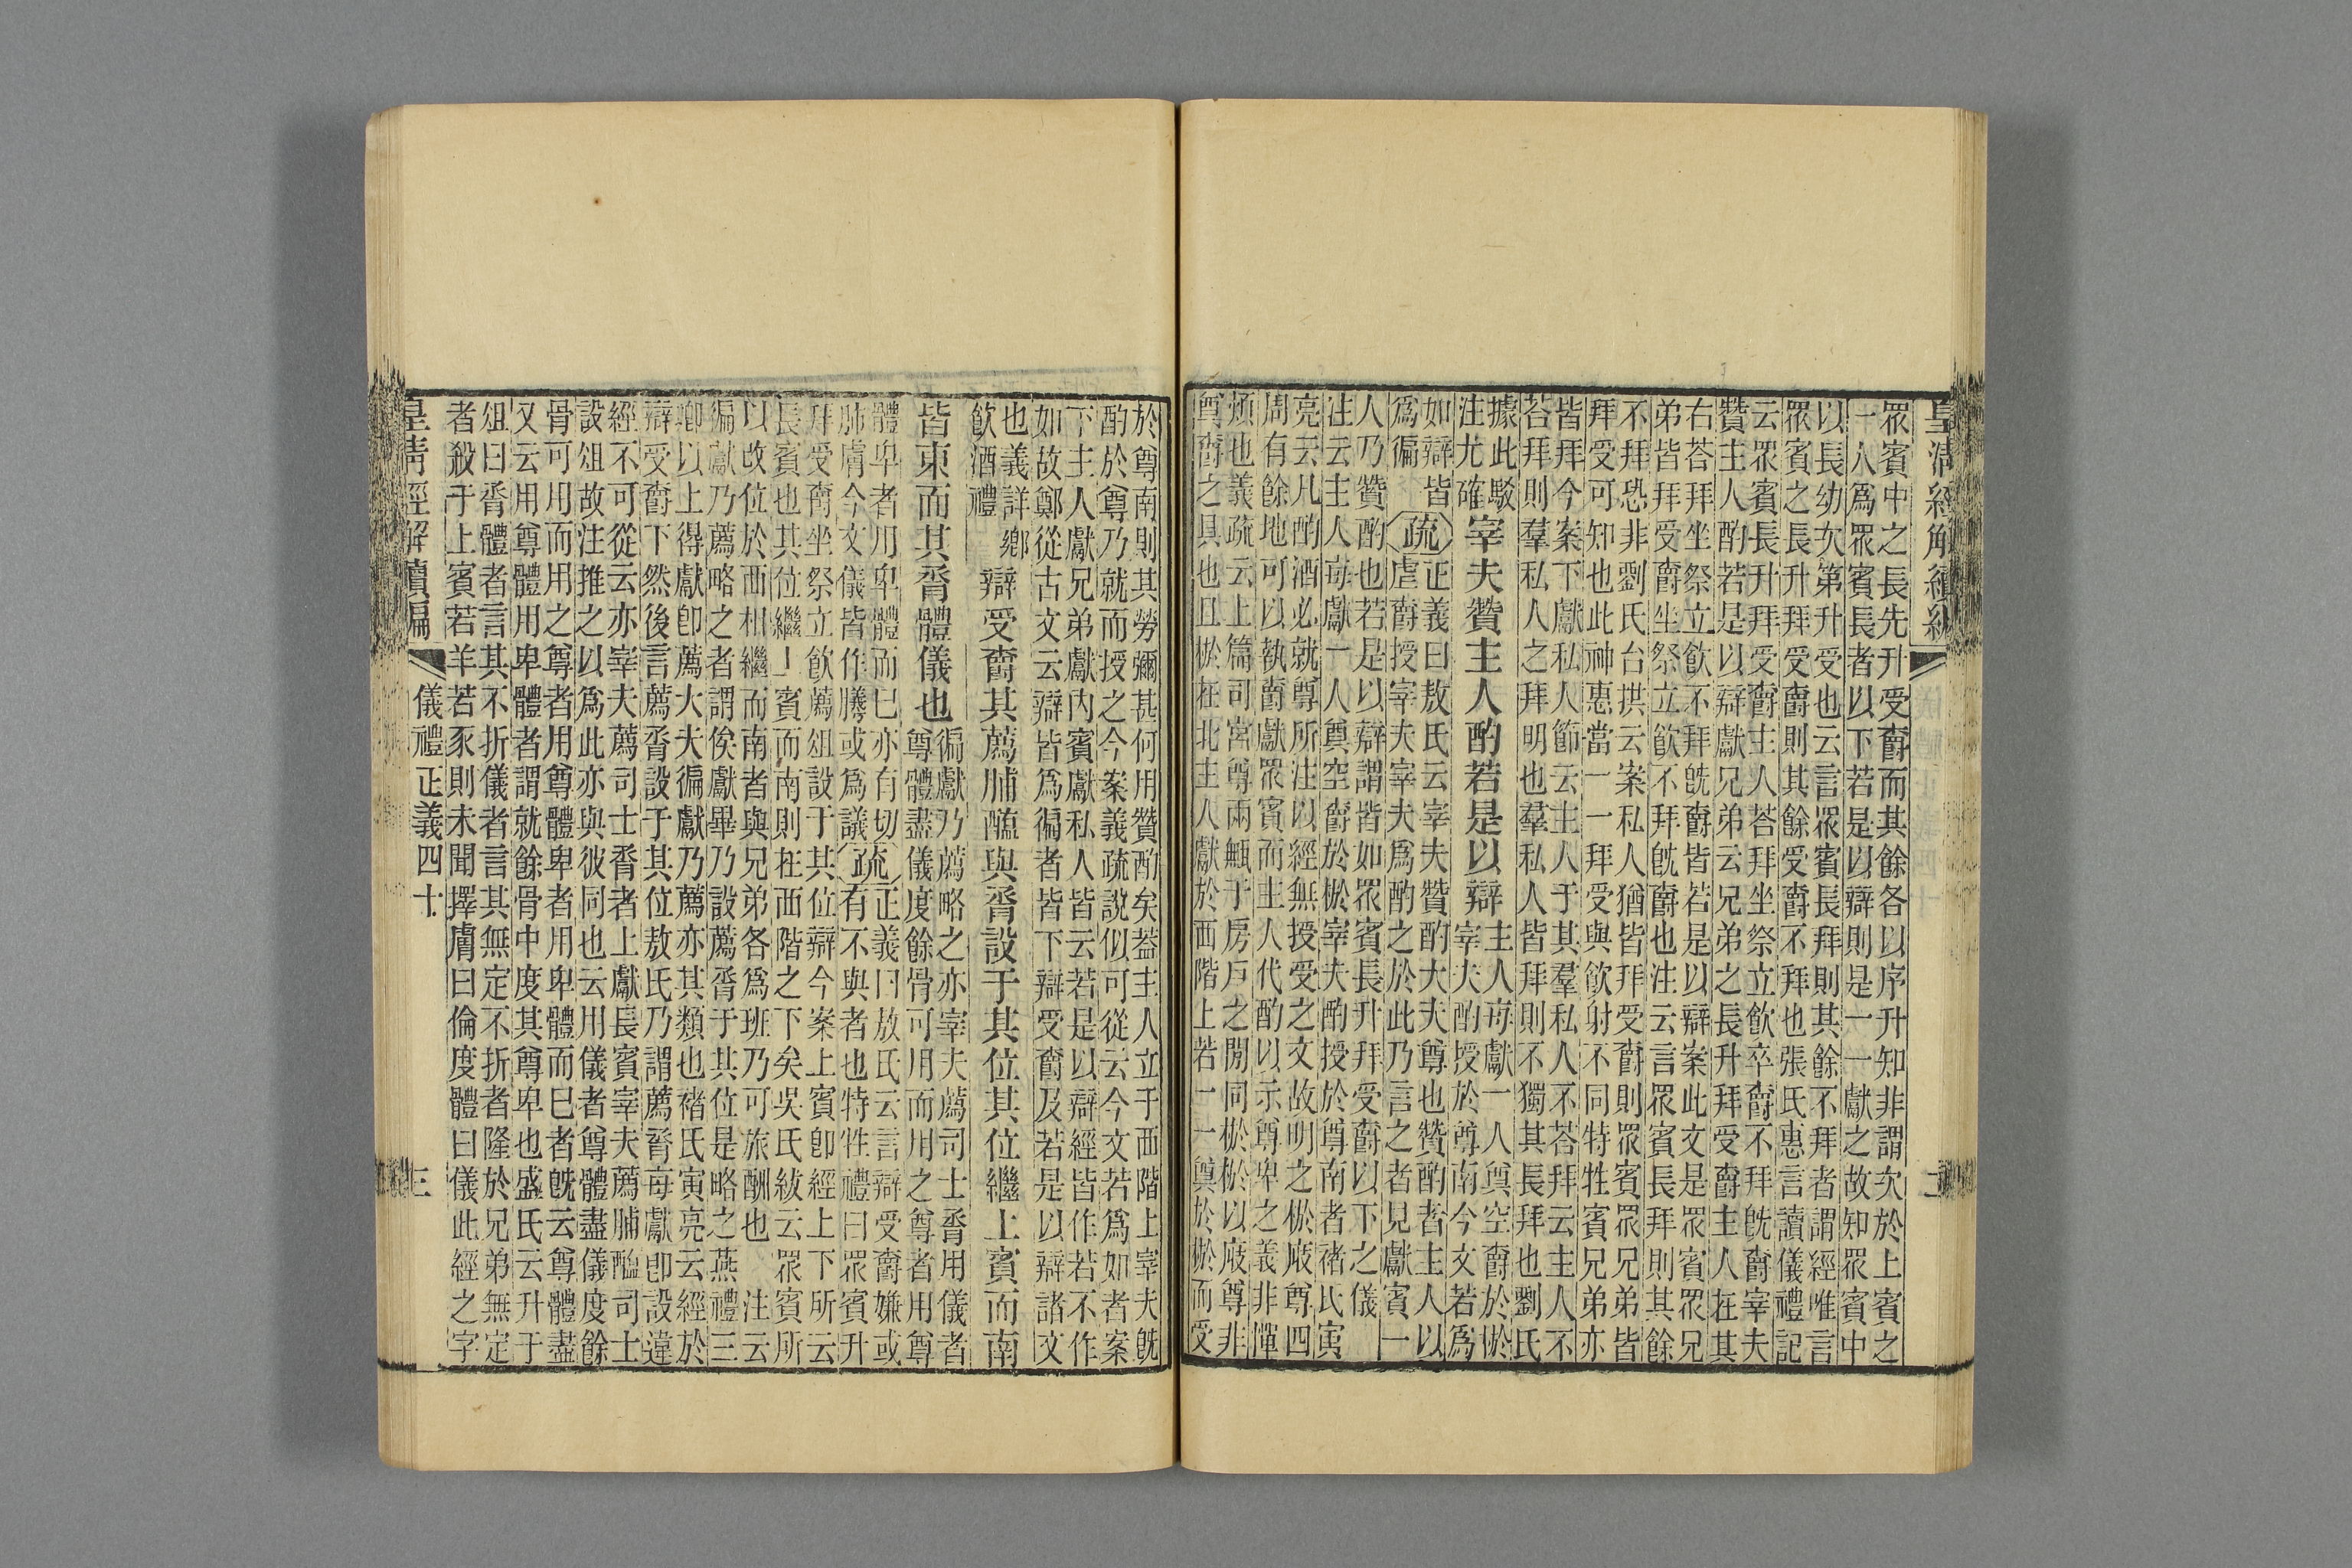 皇清經解續編
眾賓中之長先升受爵而其餘各以序升知非謂次於上賓之
一人爲眾賓長者以下若是以辯則是一一獻之故知眾賓中
以長幼次第升受也云言眾賓長拜則其餘不拜者謂經唯言
眾賓之長升拜受爵則其餘受爵不拜也張氏惠言讀儀禮記
云眾賓長升拜受爵主人荅拜坐祭立飲卒爵不拜既爵宰夫
贊主人酌若是以辯獻兄弟云兄弟之長升拜受爵主人在其
右荅拜坐祭立飲不拜既爵皆若是以辯案此文是眾賓眾兄
弟皆拜受爵坐祭立飲不拜既爵也注云言眾賓長拜則其餘
不拜恐非劉氏台拱云案私人猶皆拜受爵則眾賓眾兄弟皆
拜受可知也此神惠當一一拜受與飲射不同特牲賓兄弟亦
皆拜今案下獻私人節云主人于其羣私人不荅拜云主人不
荅拜則羣私人之拜明也羣私人皆拜則不獨其長拜也劉氏
據此駁
注尤確
宰夫贊主人酌若是以辯
主人每獻一人奠空爵於棜
宰夫酌授於尊南今文若爲
如辯皆
爲徧
疏
正義曰敖氏云宰夫贊酌大夫尊也贊酌者主人以
虛爵授宰夫宰夫爲酌之於此乃言之者見獻賓一
人乃贊酌也若是以辯謂皆如眾賓長升拜受爵以下之儀
注云主人每獻一人奠空爵於棜宰夫酌授於尊南者褚氏寅
亮云凡酌酒必就尊所注以經無授受之文故明之棜㡿尊四
周有餘地可以執爵獻眾賓而主人代酌以示尊卑之義非憚
煩也義疏云上篇司宮尊兩甒于房戶之閒同棜棜以㡿尊非
奠爵之具也且棜在北主人獻於西階上若一一奠於棜而受
於尊南則其勞彌甚何用贊酌矣葢主人立于西階上宰夫既
酌於尊乃就而授之今案義疏說似可從云今文若爲如者案
下主人獻兄弟獻內賓獻私人皆云若是以辯經皆作若不作
如故鄭從古文云辯皆爲徧者皆下辯受爵及若是以辯諸文
也義詳鄉
飲酒禮
辯受爵其薦脯醢與胥設于其位其位繼上賓而南
皆東面其胥體儀也
徧獻乃薦略之亦宰夫薦司士胥用儀者
尊體盡儀度餘骨可用而用之尊者用尊
體卑者用卑體而已亦有切
肺膚今文儀皆作䑆或爲議
疏
正義曰敖氏云言辯受爵嫌或
有不與者也特牲禮曰眾賓升
拜受爵坐祭立飲薦俎設于其位辯今案上賓卽經上下所云
長賓也其位繼上賓而南則在西階之下矣吳氏紱云眾賓所
以改位於西相繼而南者與兄弟各爲班乃可旅酬也　注云
徧獻乃薦略之者謂俟獻畢乃設薦胥于其位是略之燕禮三
卿以上得獻卽薦大夫徧獻乃薦亦其類也褚氏寅亮云經於
辯受爵下然後言薦胥設于其位敖氏乃謂薦胥每獻卽設違
經不可從云亦宰夫薦司士胥者上獻長賓宰夫薦脯醢司士
設俎故注推之以爲此亦與彼同也云用儀者尊體盡儀度餘
骨可用而用之尊者用尊體卑者用卑體而已者既云尊體盡
又云用尊體用卑體者謂就餘骨中度其尊卑也盛氏云升于
俎曰胥體者言其不折儀者言其無定不折者隆於兄弟無定
者殺于上賓若羊若豕則未聞擇膚曰倫度體曰儀此經之字
皇清經解續編
儀禮正義四十
三